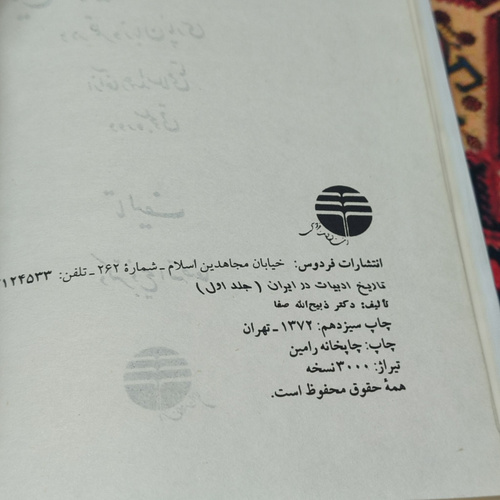 انتشارات فردوس: خیابان مجاهدین اسلام ـ شمارهٔ ۲۶۲ ـ تلفن: ۱۲۴۵۳۳
تاریخ ادبیات در ایران (جلد اول)
تألیف: دکتر ذبیح‌الله صفا
چاپ سیزدهم: ۱۳۷۲ ـ تهران
چاپ: چاپخانه رامین
تیراژ: ۳۰۰۰ نسخه
همهٔ حقوق محفوظ است.